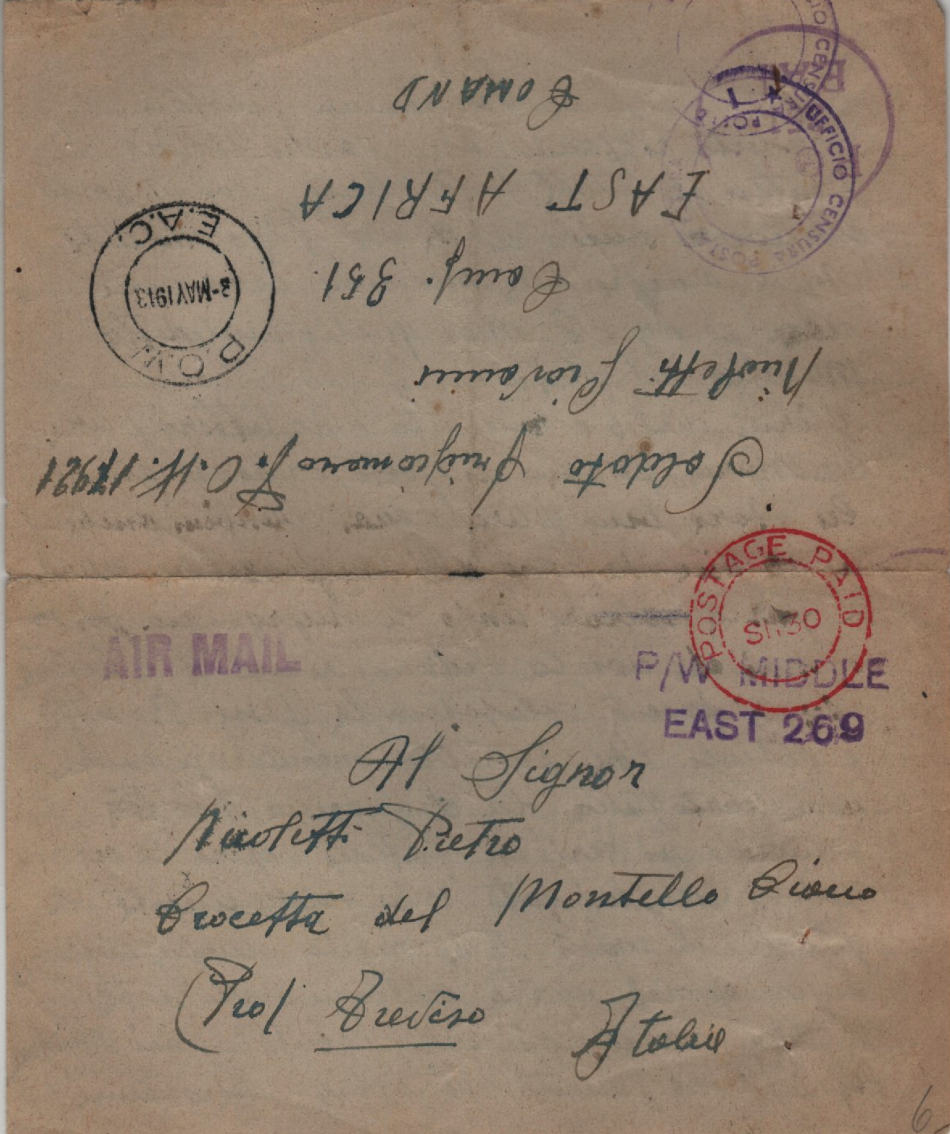 Soldato Prigioniero P.O.W. 17921
Nicoletti Giovanni
Camp. 351
EAST AFRICA
COMAND
P.O.W.
3-MAY1943
E.A.C.
UFFICIO CENSURA POSTA
AIR MAIL
POSTAGE PAID
SH.30
P/W MIDDLE
EAST 269
Al Signor
Nicoletti Pietro
Crocetta del Montello Ciano
Prov Treviso Italia
6